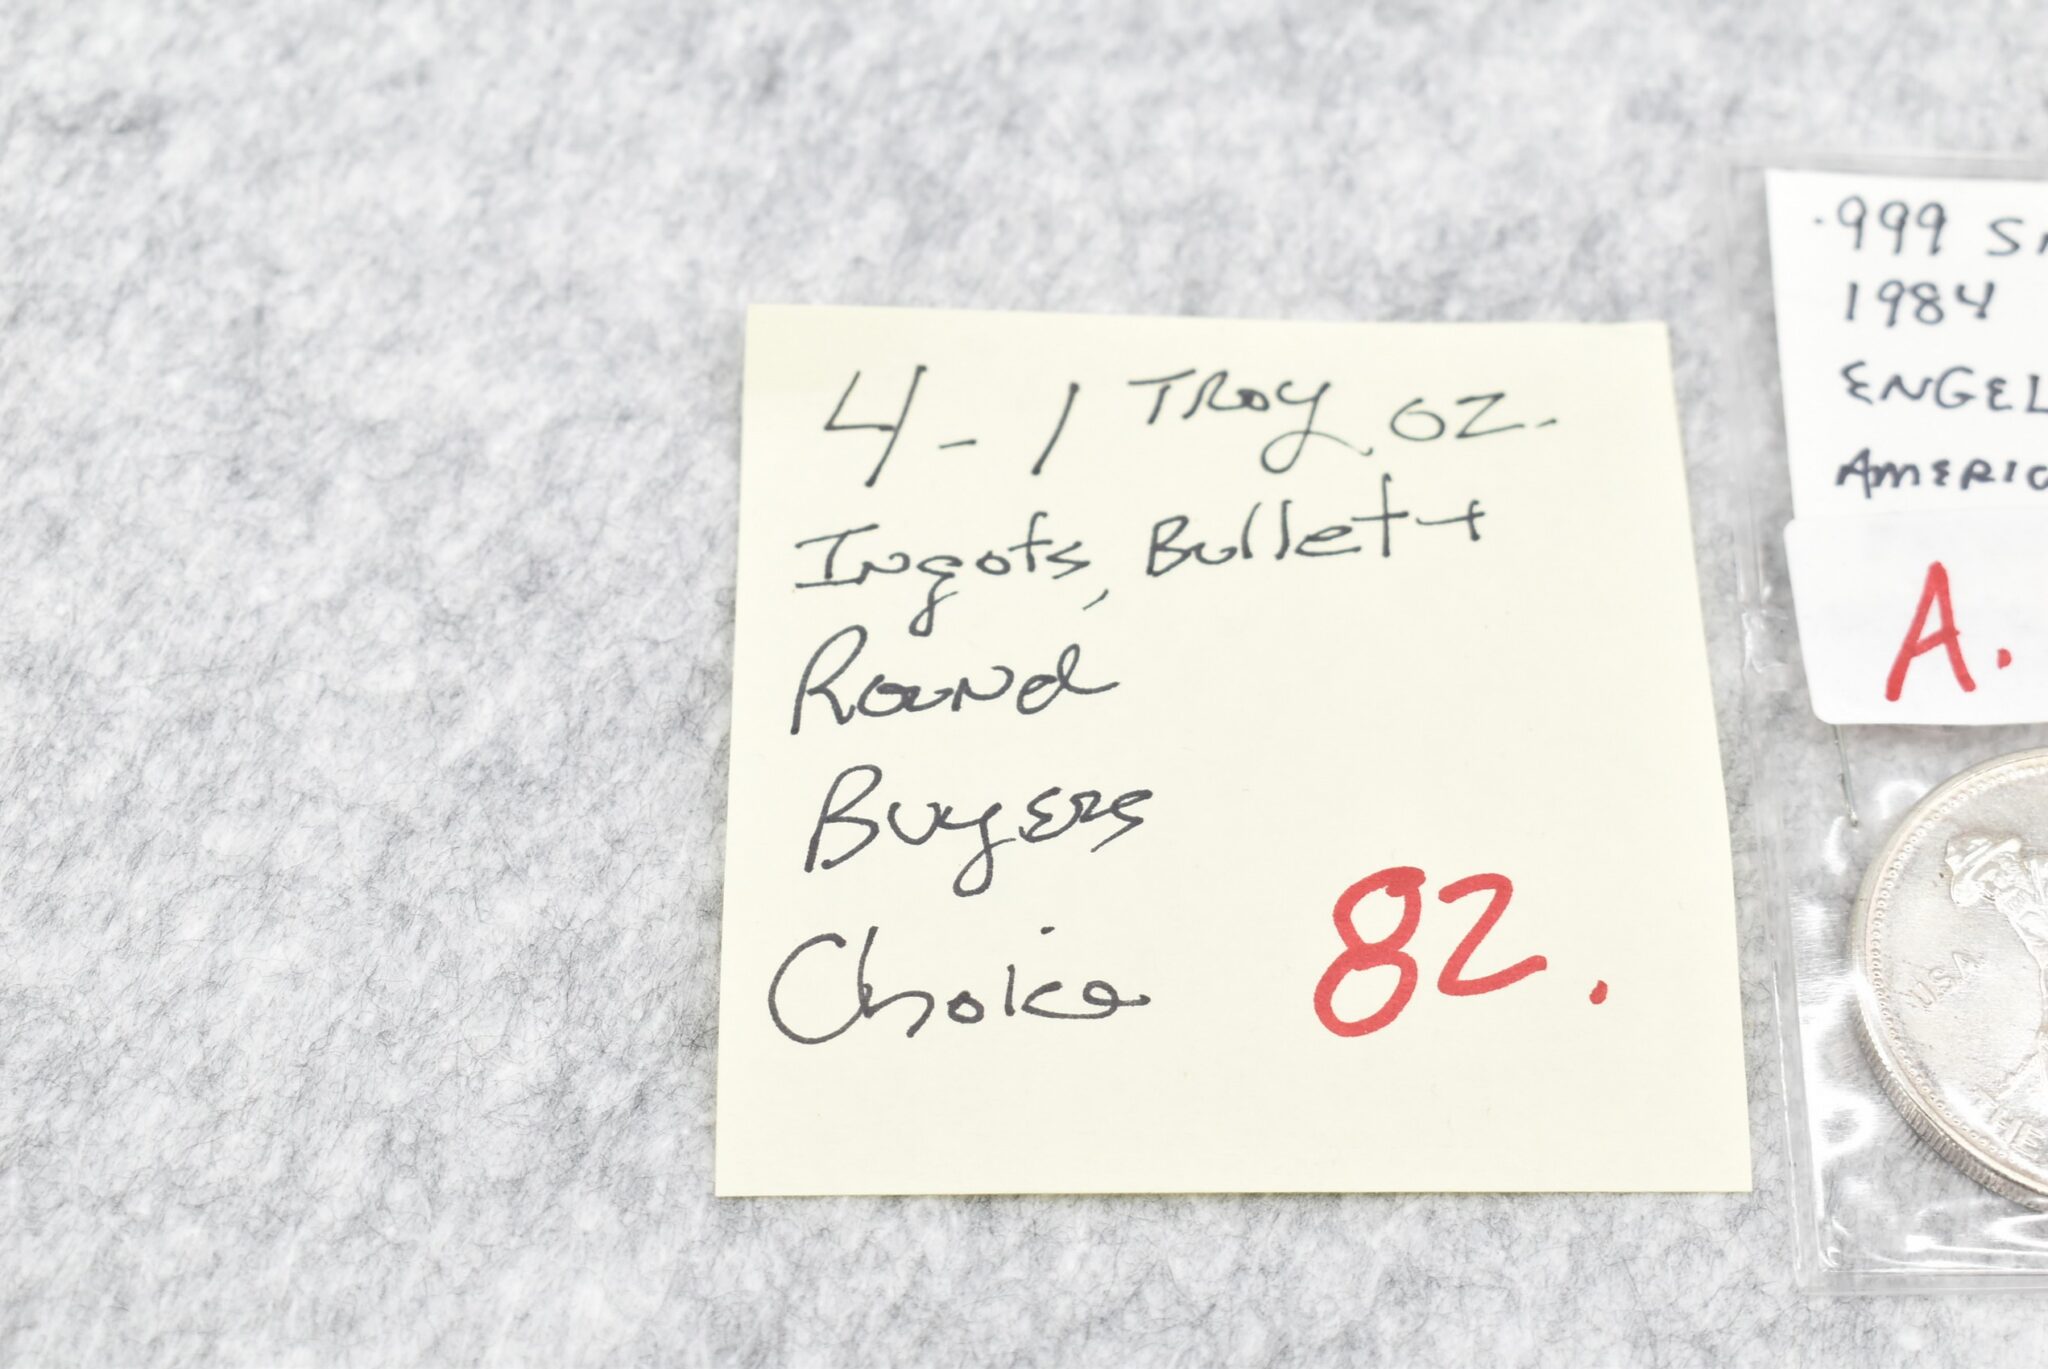 4-1 Troy oz.
Ingots, Bullet +
Round
Buyers
Choice
82.
.999
1984
ENGEL
AMERIC
A.
USA
THE